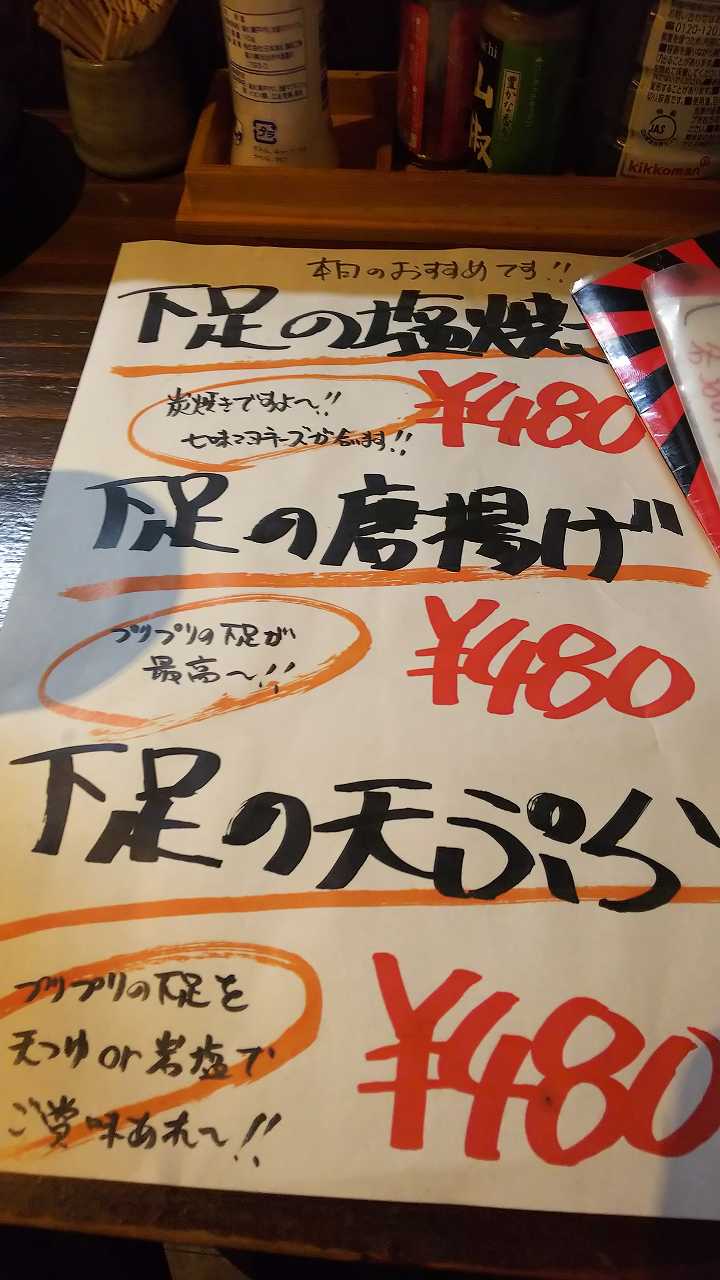 本日のおすすめです!!
下足の塩焼き
炭焼きですよ〜!!
七味マヨネーズが合います!!
¥480
下足の唐揚げ
プリプリの下足が
最高〜!!
¥480
下足の天ぷら
プリプリの下足を
天つゆor岩塩で
ご賞味あれ〜!!
¥480
山椒
豊かな香り
JAS
kikkoman